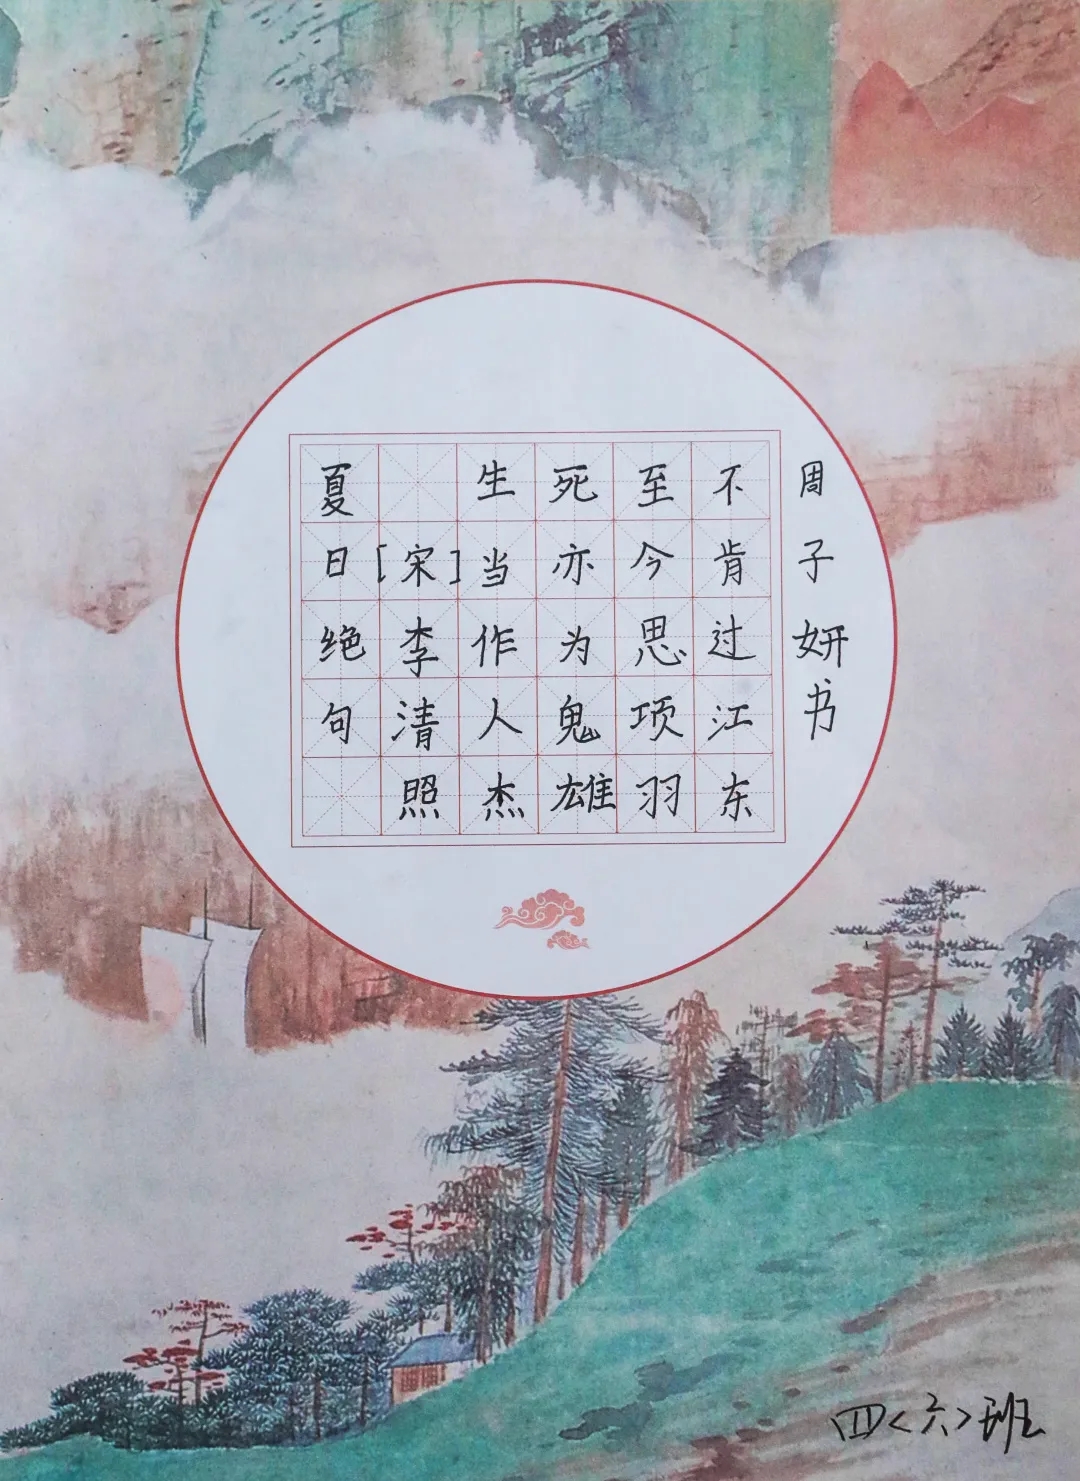 夏日绝句
[宋]李清照
生当作人杰
死亦为鬼雄
至今思项羽
不肯过江东
周子妍书
四<六>班